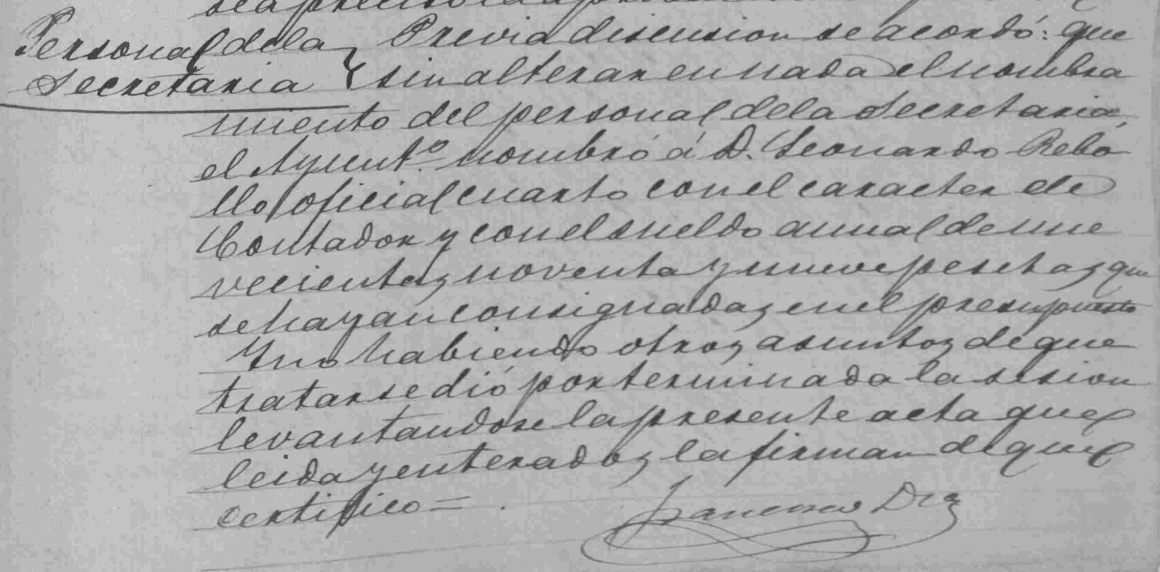 Personal de la
Secretaria
Previa discusion se acordó: que
sin alterar en nada el nombra
miento del personal de la Secretaria,
el Ayuntº nombró á D. Leonardo Rebo
llo, oficial cuarto con el caracter de
Contador y con el sueldo anual de nue
vecientas noventa y nueve pesetas que
se hayan consignadas en el presupuesto
Y no habiendo otros asuntos de que
tratar se dió por terminada la sesion
levantandose la presente acta que
leida y enterados la firman de que
certifico=
Francisco Diz